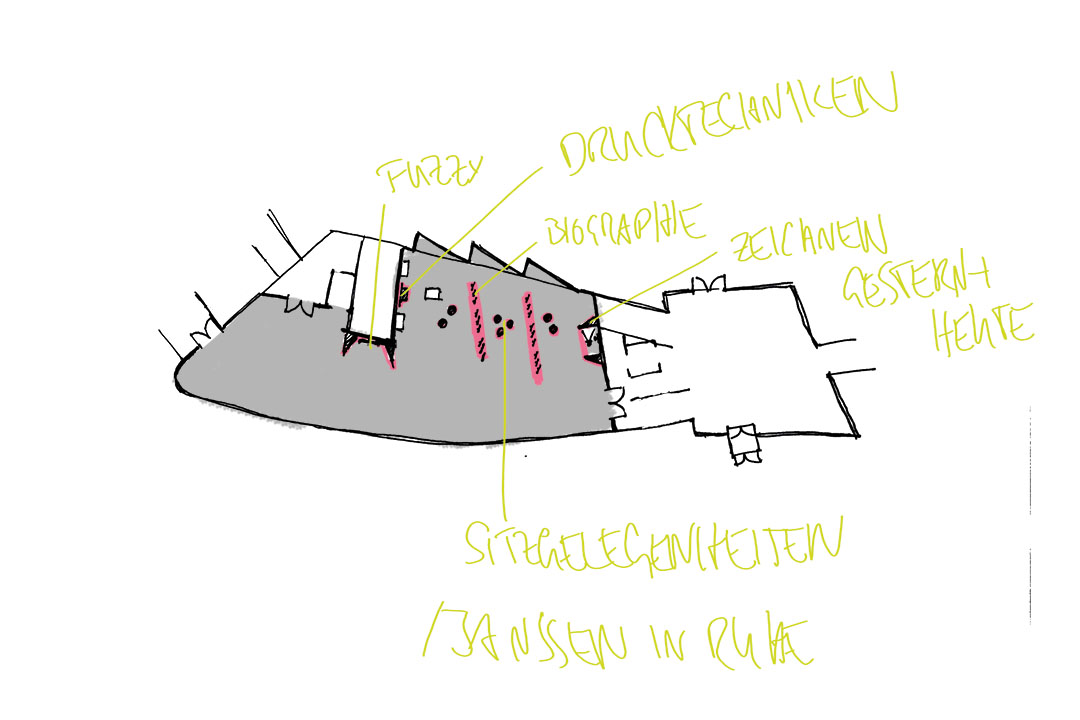 DRUCKTECHNIKEN
FUZZY
BIOGRAPHIE
ZEICHNEN
GESTERN +
HEUTE
SITZGELEGENHEITEN
/JANSSEN IN RUHE